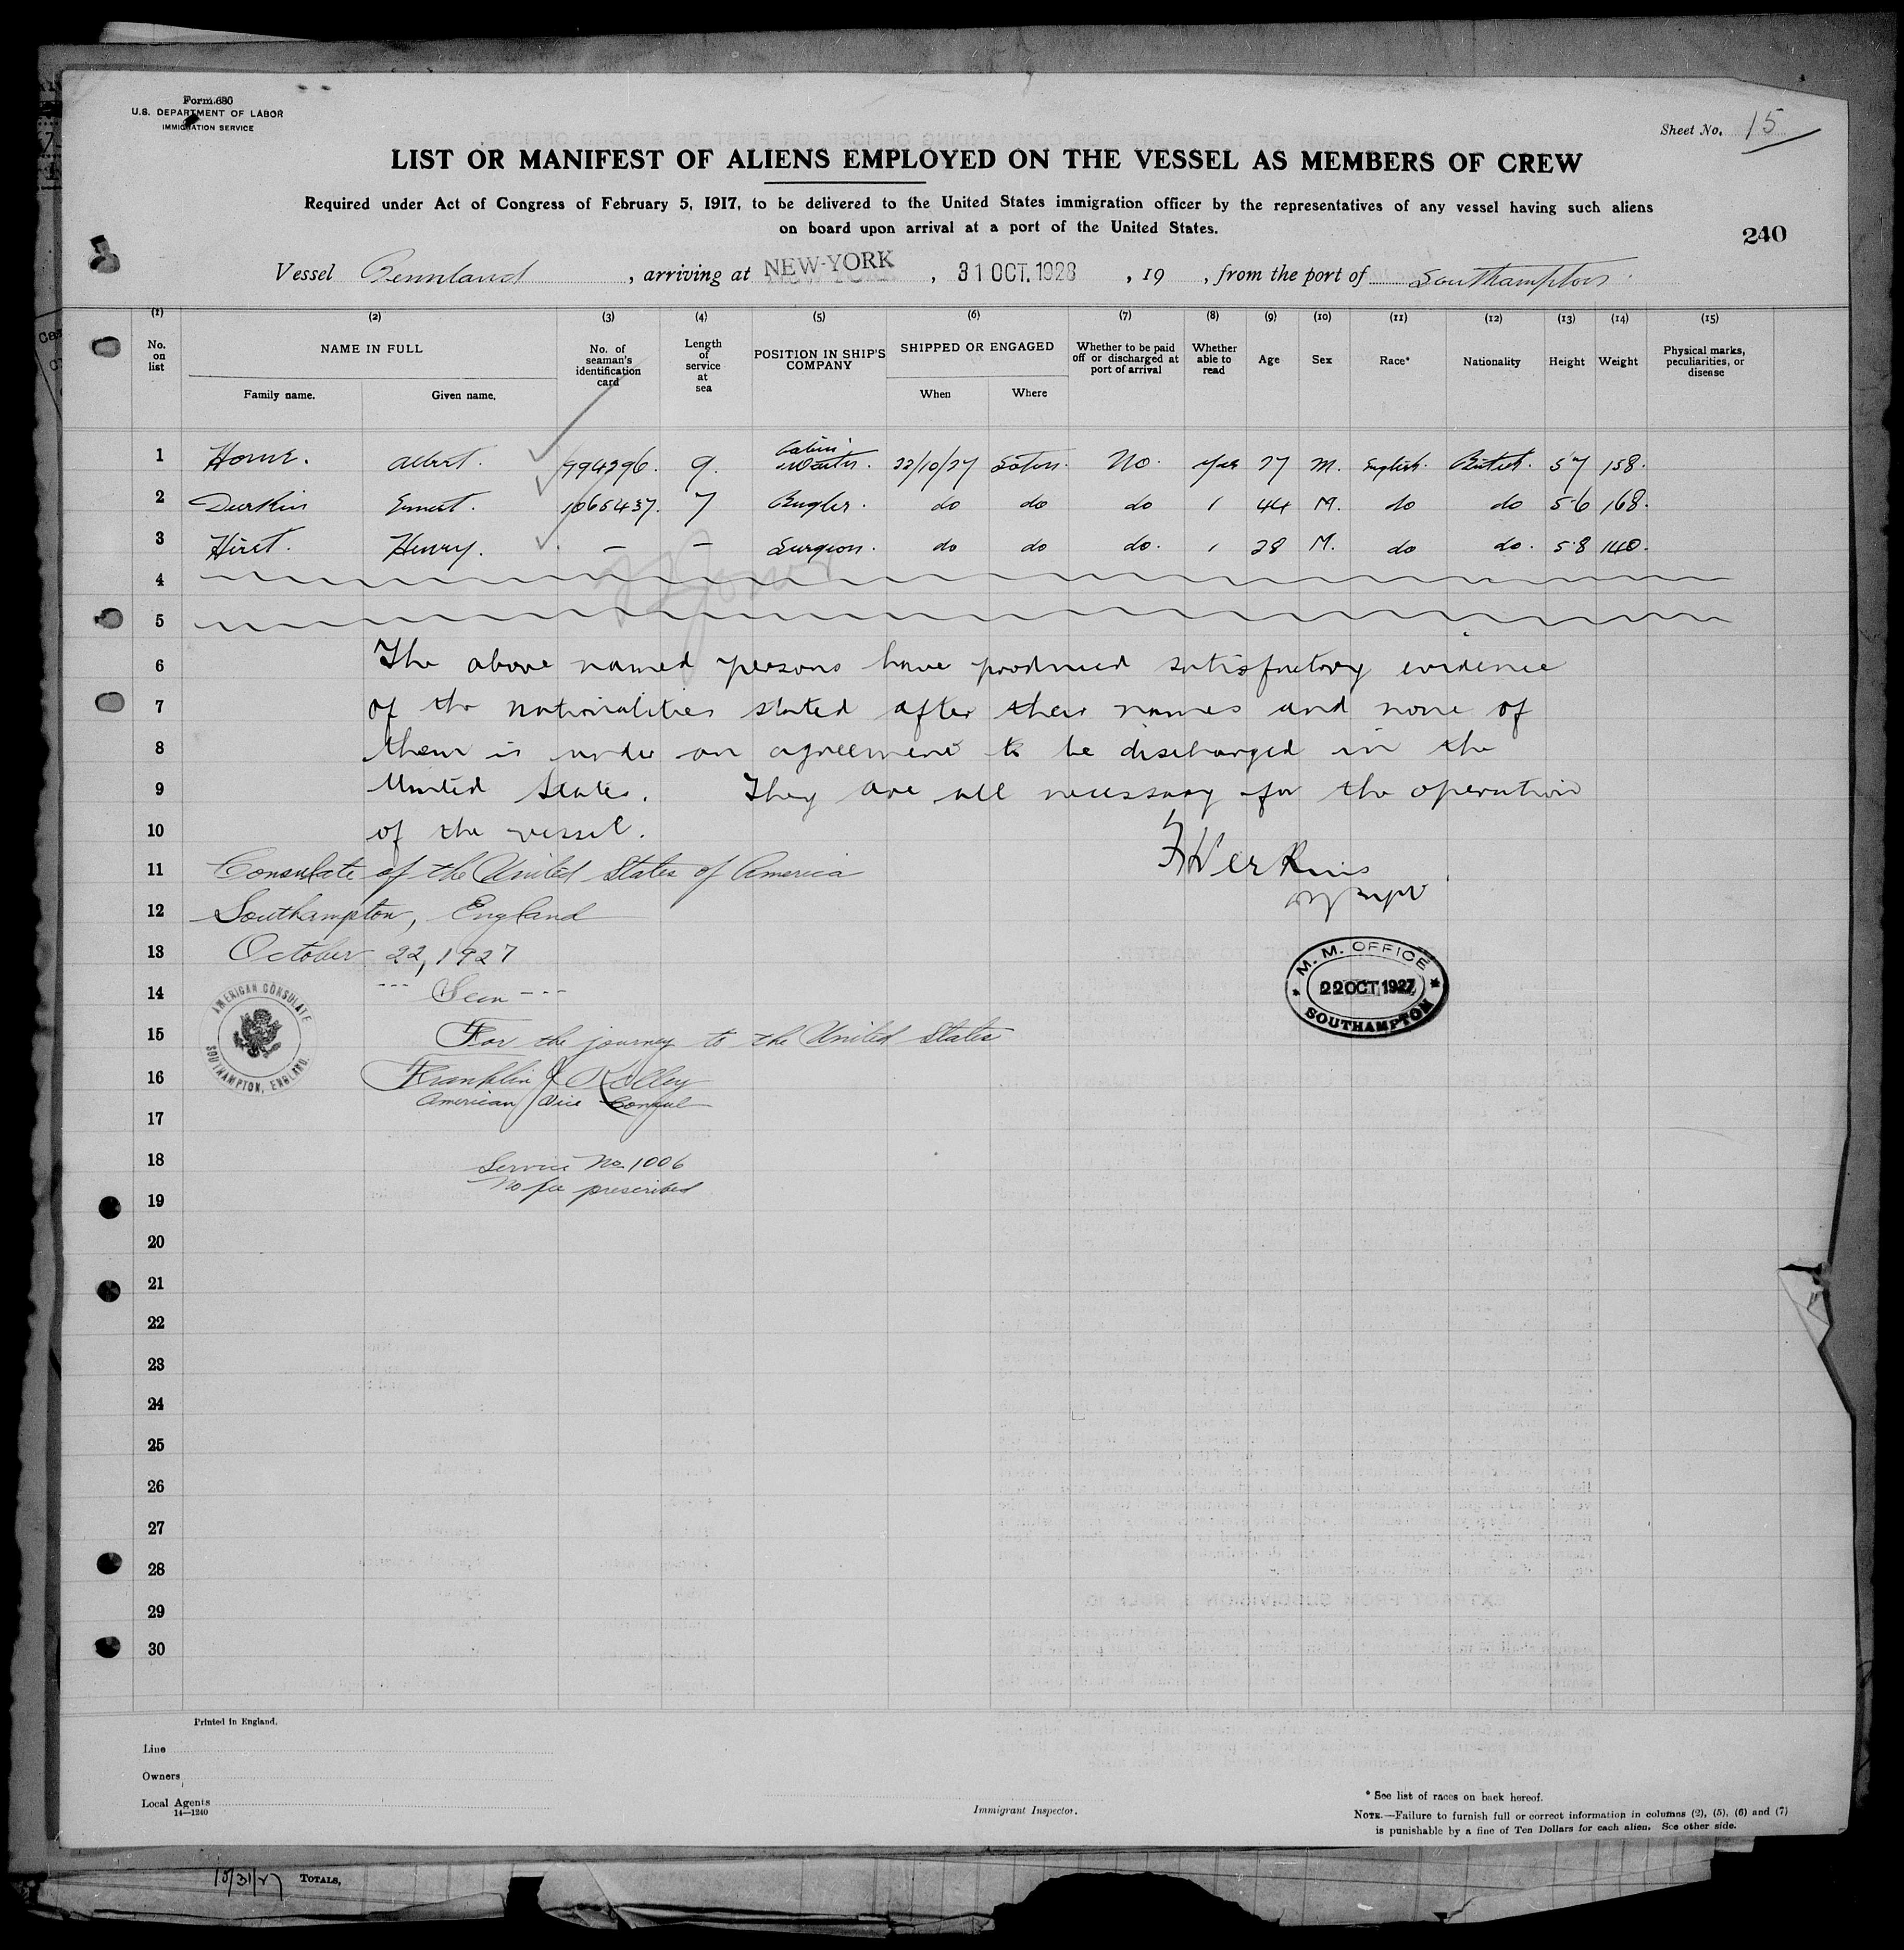 Form 680
U.S. DEPARTMENT OF LABOR
IMMIGRATION SERVICE
Sheet No. 15
LIST OR MANIFEST OF ALIENS EMPLOYED ON THE VESSEL AS MEMBERS OF CREW
Required under Act of Congress of February 5, 1917, to be delivered to the United States immigration officer by the representatives of any vessel having such aliens
on board upon arrival at a port of the United States.
240
Vessel Pennland, arriving at NEW-YORK, 31 OCT. 1928, 19 , from the port of Southampton
(1) (2) (3) (4) (5) (6) (7) (8) (9) (10) (11) (12) (13) (14) (15)
No. on list NAME IN FULL No. of seaman's identification card Length of service at sea POSITION IN SHIP'S COMPANY SHIPPED OR ENGAGED Whether to be paid off or discharged at port of arrival Whether able to read Age Sex Race* Nationality Height Weight Physical marks, peculiarities, or disease
Family name. Given name. When Where
1 Horne. Albert. 994296. 9. Cabin Waiter. 22/10/27 Soton. No. Yes 27 M. English. British. 5·7 158.
2 Durkin Ernest. 1065437. 7 Bugler. do do do 1 44 M. do do 5·6 168.
3 Hirst. Henry. – – Surgeon. do do do. 1 28 M. do do. 5·8 140.
4
5
6 The above named persons have produced satisfactory evidence
7 of the nationalities stated after their names and none of
8 them is under an agreement to be discharged in the
9 United States. They are all necessary for the operation
10 of the vessel.
11 Consulate of the United States of America
12 Southampton, England
13 October 22, 1927
M. M. OFFICE
22 OCT 1927
SOUTHAMPTON
14 --- Seen ---
AMERICAN CONSULATE
SOUTHAMPTON, ENGLAND.
15 For the journey to the United States
16 Franklin
American Vice Consul
17
18 Service No 1006
No fee prescribed
19
20
21
22
23
24
25
26
27
28
29
30
Printed in England.
Line
Owners
Local Agents
14—1240
Immigrant Inspector.
* See list of races on back hereof.
NOTE.—Failure to furnish full or correct information in columns (2), (5), (6) and (7)
is punishable by a fine of Ten Dollars for each alien. See other side.
10/31/27 TOTALS,